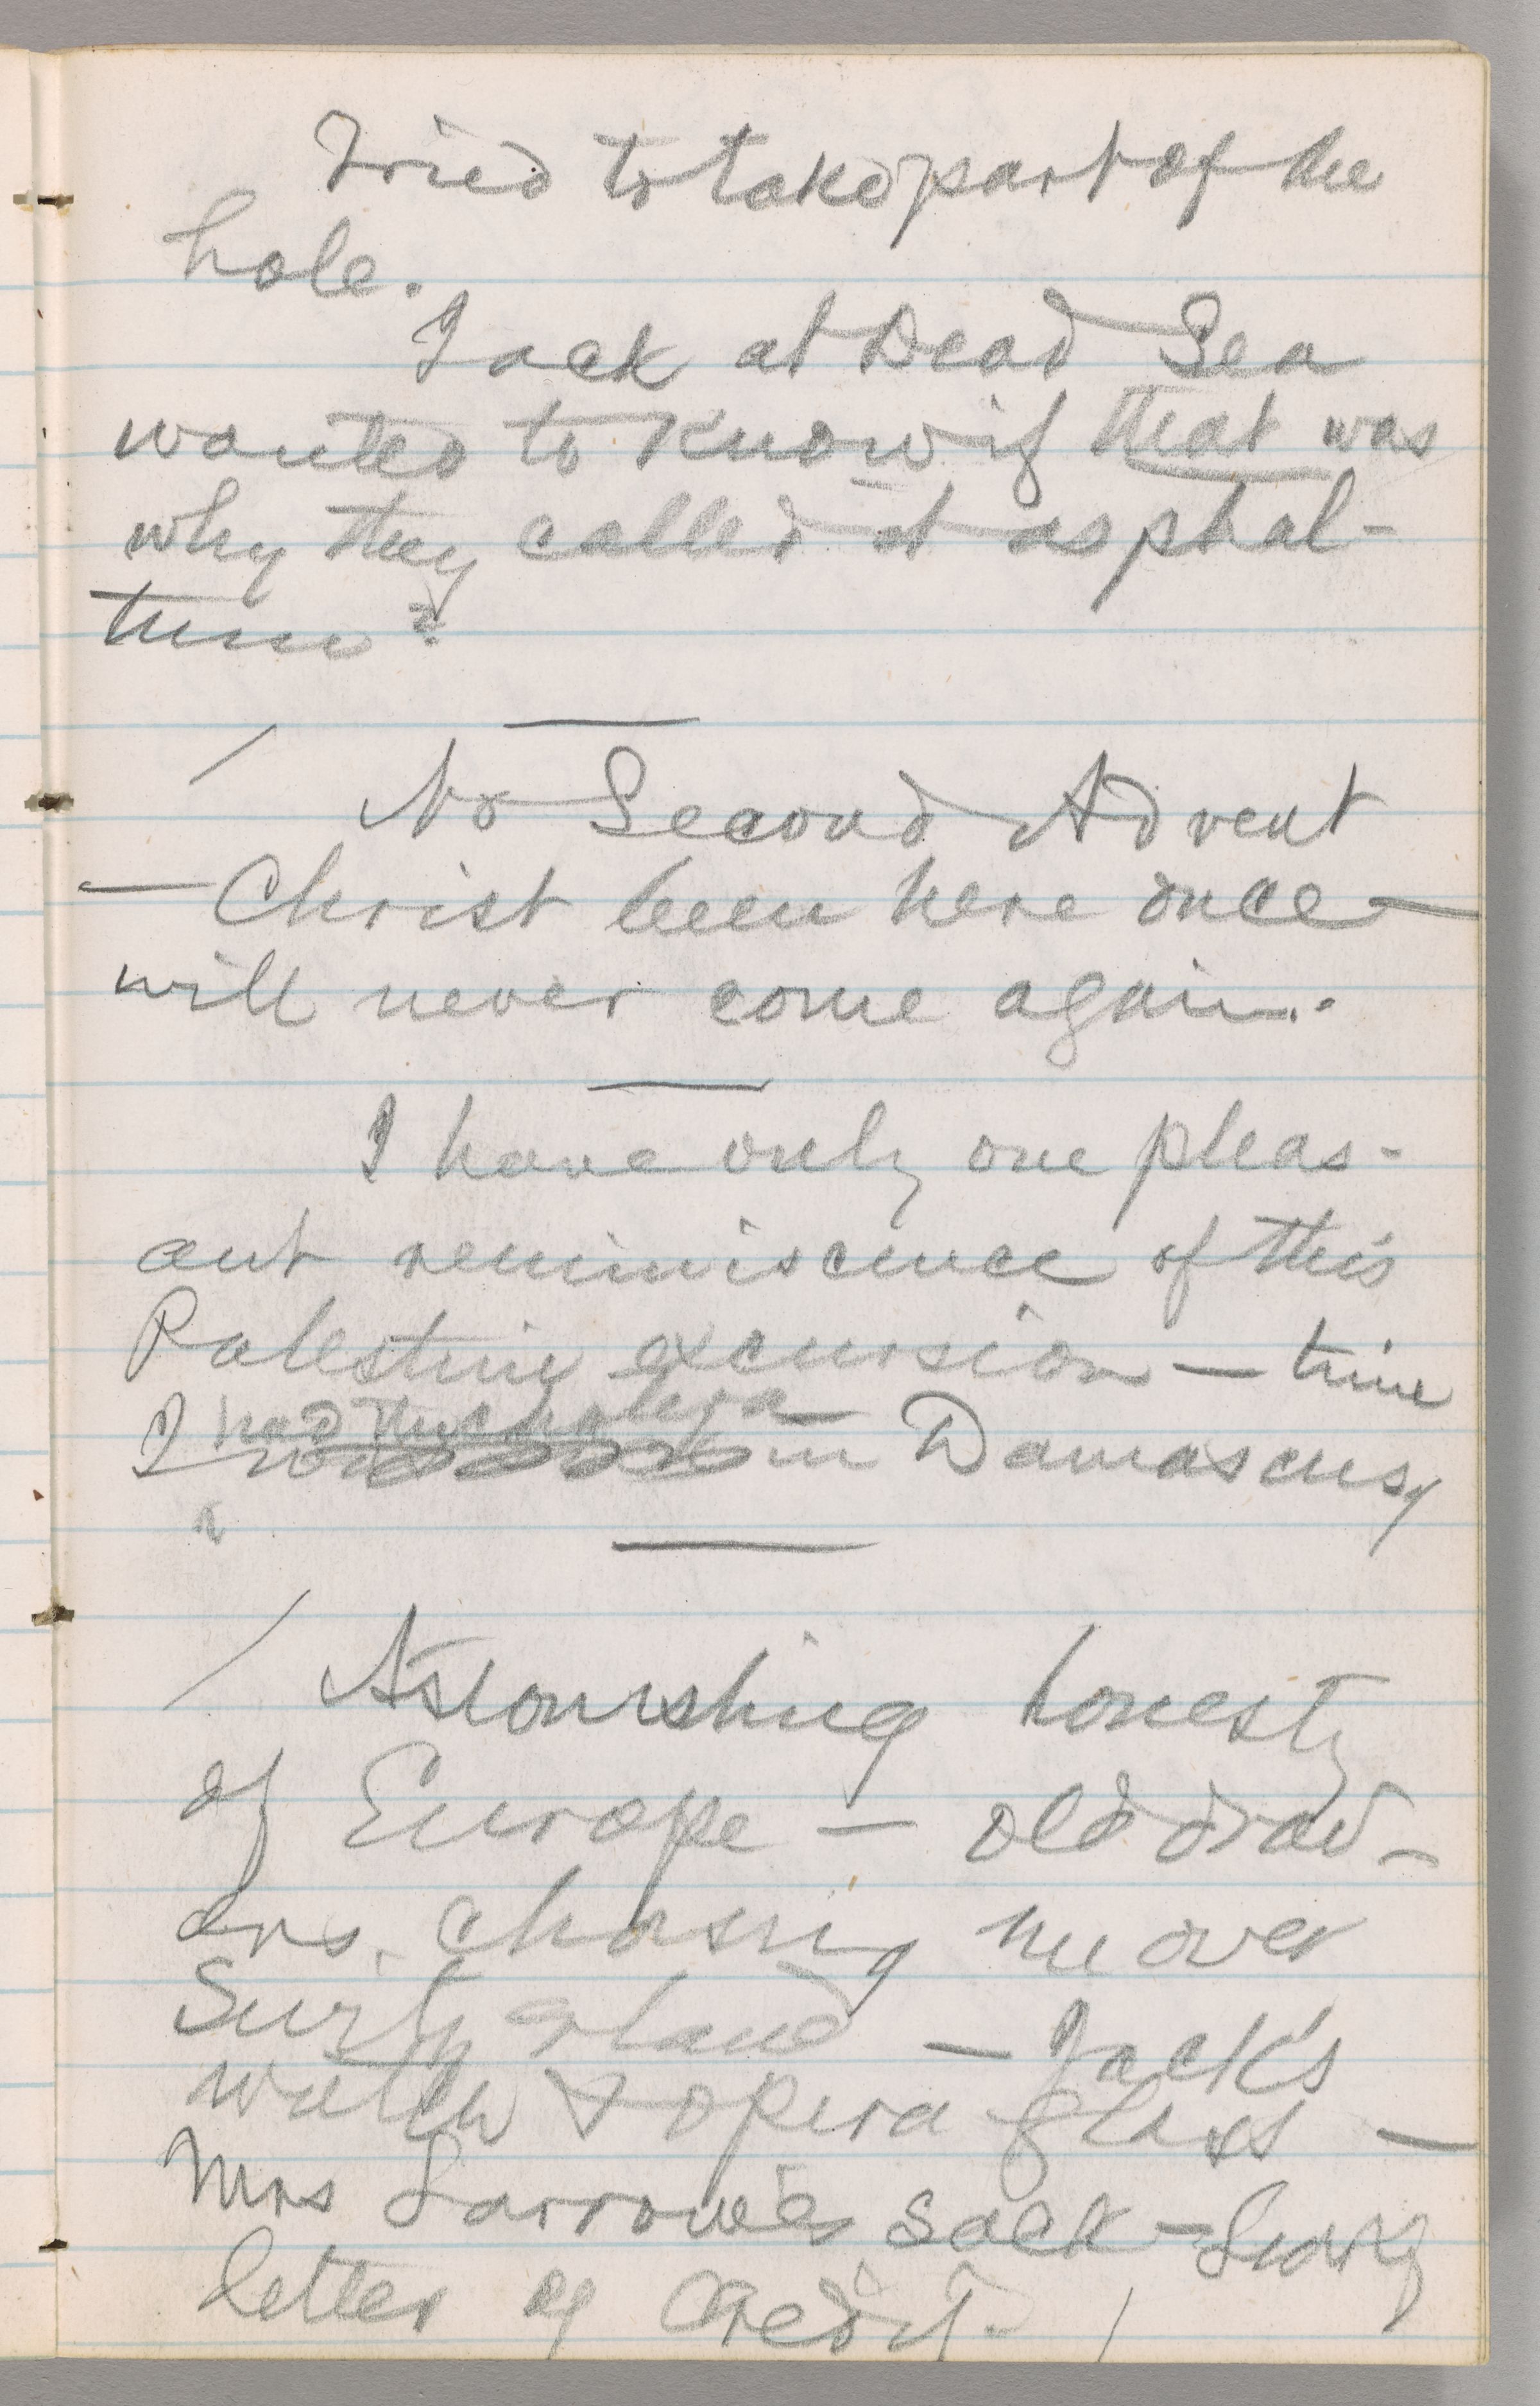 Tried to take part of the
hole.
Jack at Dead Sea
wanted to know if that was
why they called it asphal-
tum?
No Second Advent
— Christ been here once —
will never come again.
I have only one pleas-
ant reminiscence of this
Palestine excursion — time
I had the cholera in Damascus,
/ Astonishing honesty
of Europe — old draw-
ers, chasing me over
Switzerland — Jack's
watch & opera glass —
Mrs Larrowe's sack —
letter of Credit.